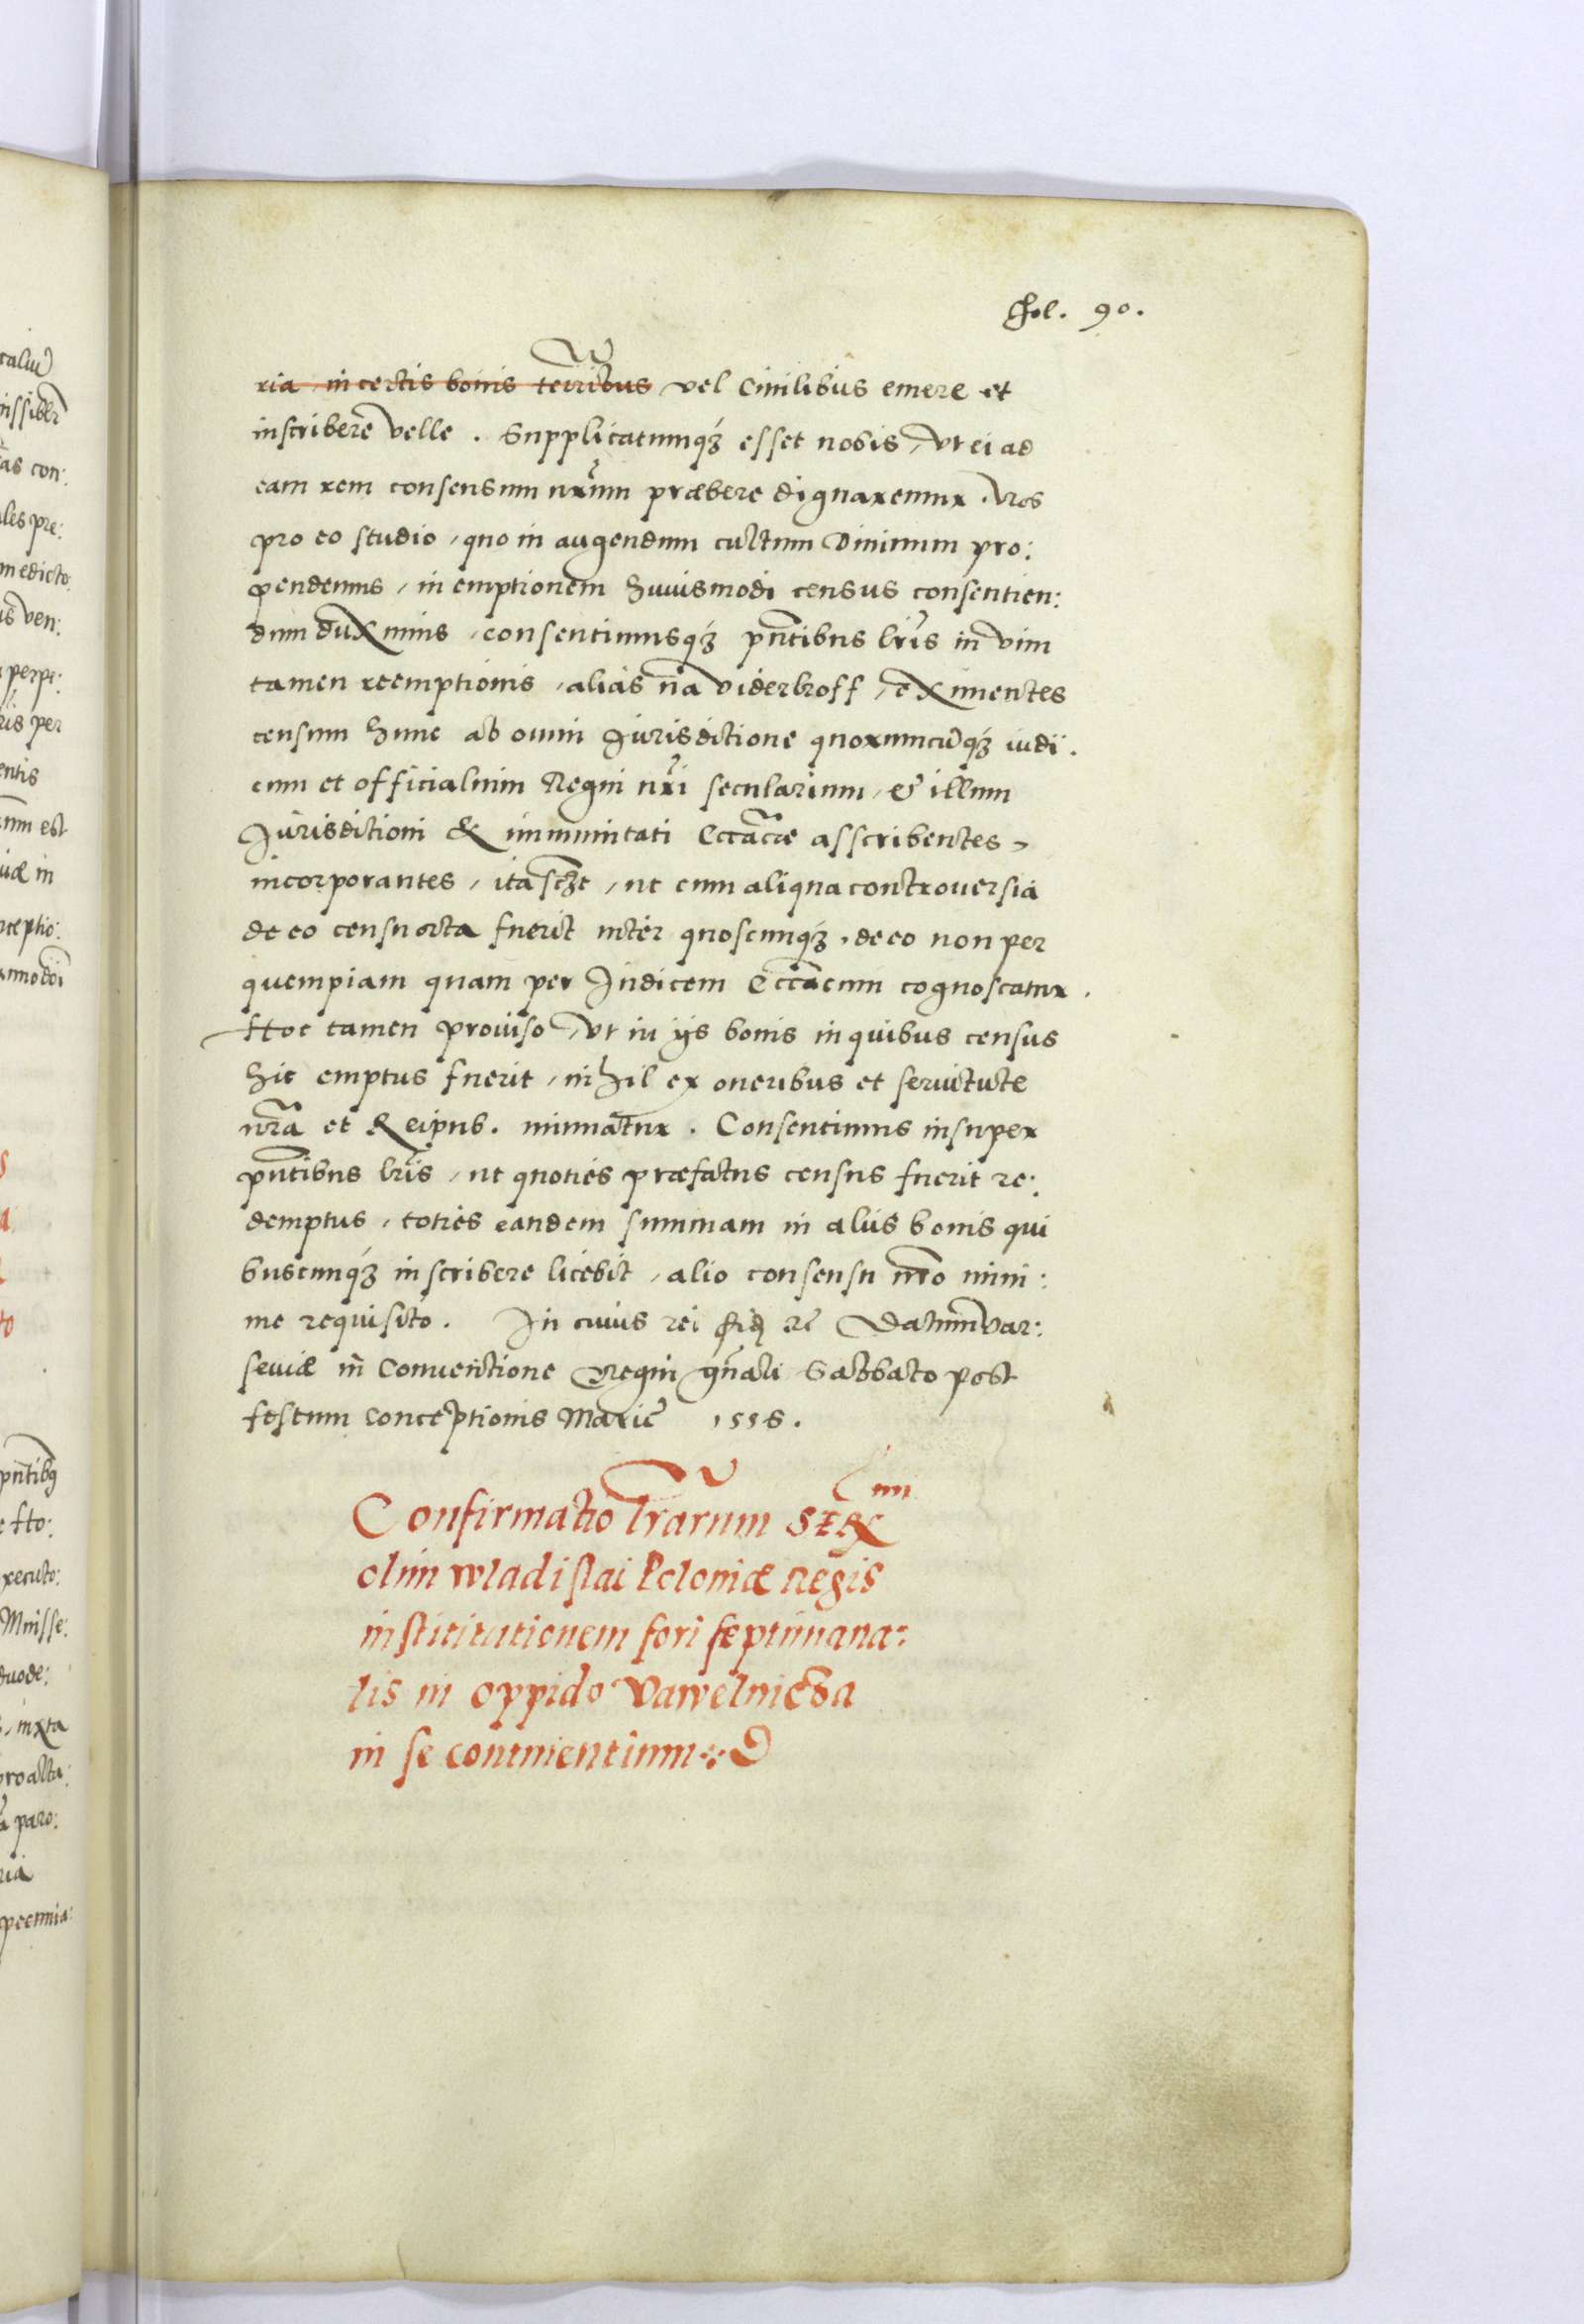 Fol. 90.
ria in certis bonis terribus vel Ciuilibus emere et
inscribere velle. Supplicatumqꝫ esset nobis, vt ei ad
eam rem consensum nrum præbere dignaremur. Nos
pro eo studio, quo in augendum cultum Diuinum pro:
pendemus, in emptionem huiusmodi census consentien:
dum duximus, consentimusqꝫ pntibus lris in vim
tamen reemptionis, alias na viderkoff, eximentes
censum hunc ab omni Jurisdictione quorumcunqꝫ iudi.
cum et officialium Regni nri secularium, & illum
Jurisdictioni & immunitati Eccacæ asscribentes,
incorporantes, ita scꝫt, ut cum aliqua controuersia
de eo censu orta fuerit inter quoscunqꝫ, de eo non per
quempiam quam per Judicem Eccacum cognoscatur.
Hoc tamen prouiso, vt in ijs bonis in quibus census
hic emptus fuerit, nihil ex oneribus et seruitute
nra et Reipub. minuatur. Consentimus insuper
pntibus lris, ut quoties præfatus census fuerit re:
demptus, toties eandem summam in alijs bonis qui
buscunqꝫ inscribere licebit, alio consensu nro mini:
me requisito. In cuius rei fid rc Datum Var:
seuiæ in Conuentione Regni gnali Sabbato post
festum Conceptionis Marie 1556.
Confirmatio lrarum Ser mi
olim wladislai Poloniæ Regis
institutationem fori septimana:
lis in oppido Vawelnicza
in se continentium